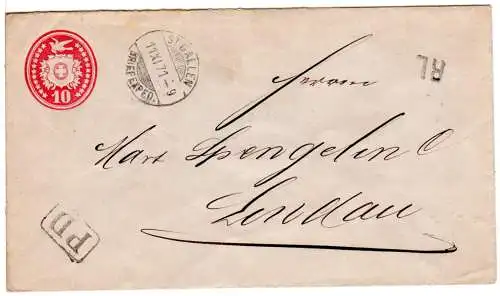 10
ST. GALLEN
11 XI 71 - 9
BRIEFEXPED.
RL
Herrn
Mart Spengelin
Lindau
PD